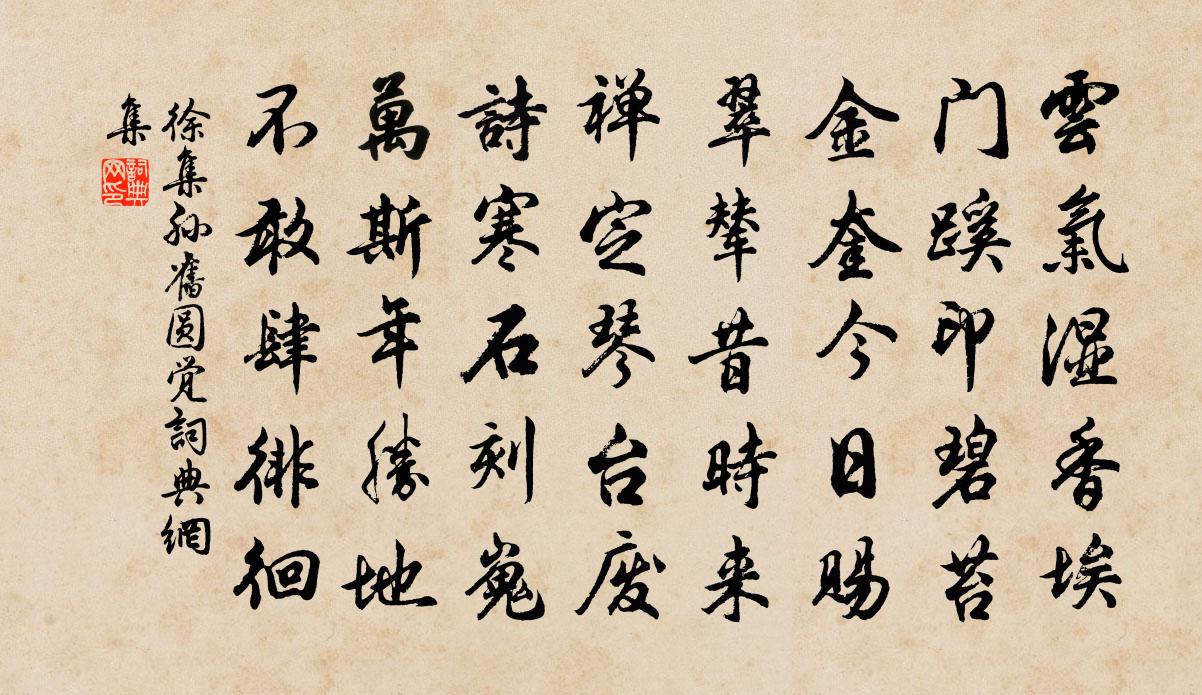 雲氣湿香埃
门蹊印碧苔
金奎今日赐
翠辇昔時来
禅定琴台废
詩寒石刻嵬
萬斯年勝地
不敢肆徘徊
徐集孙舊圆觉詞典網
集
詞典网印